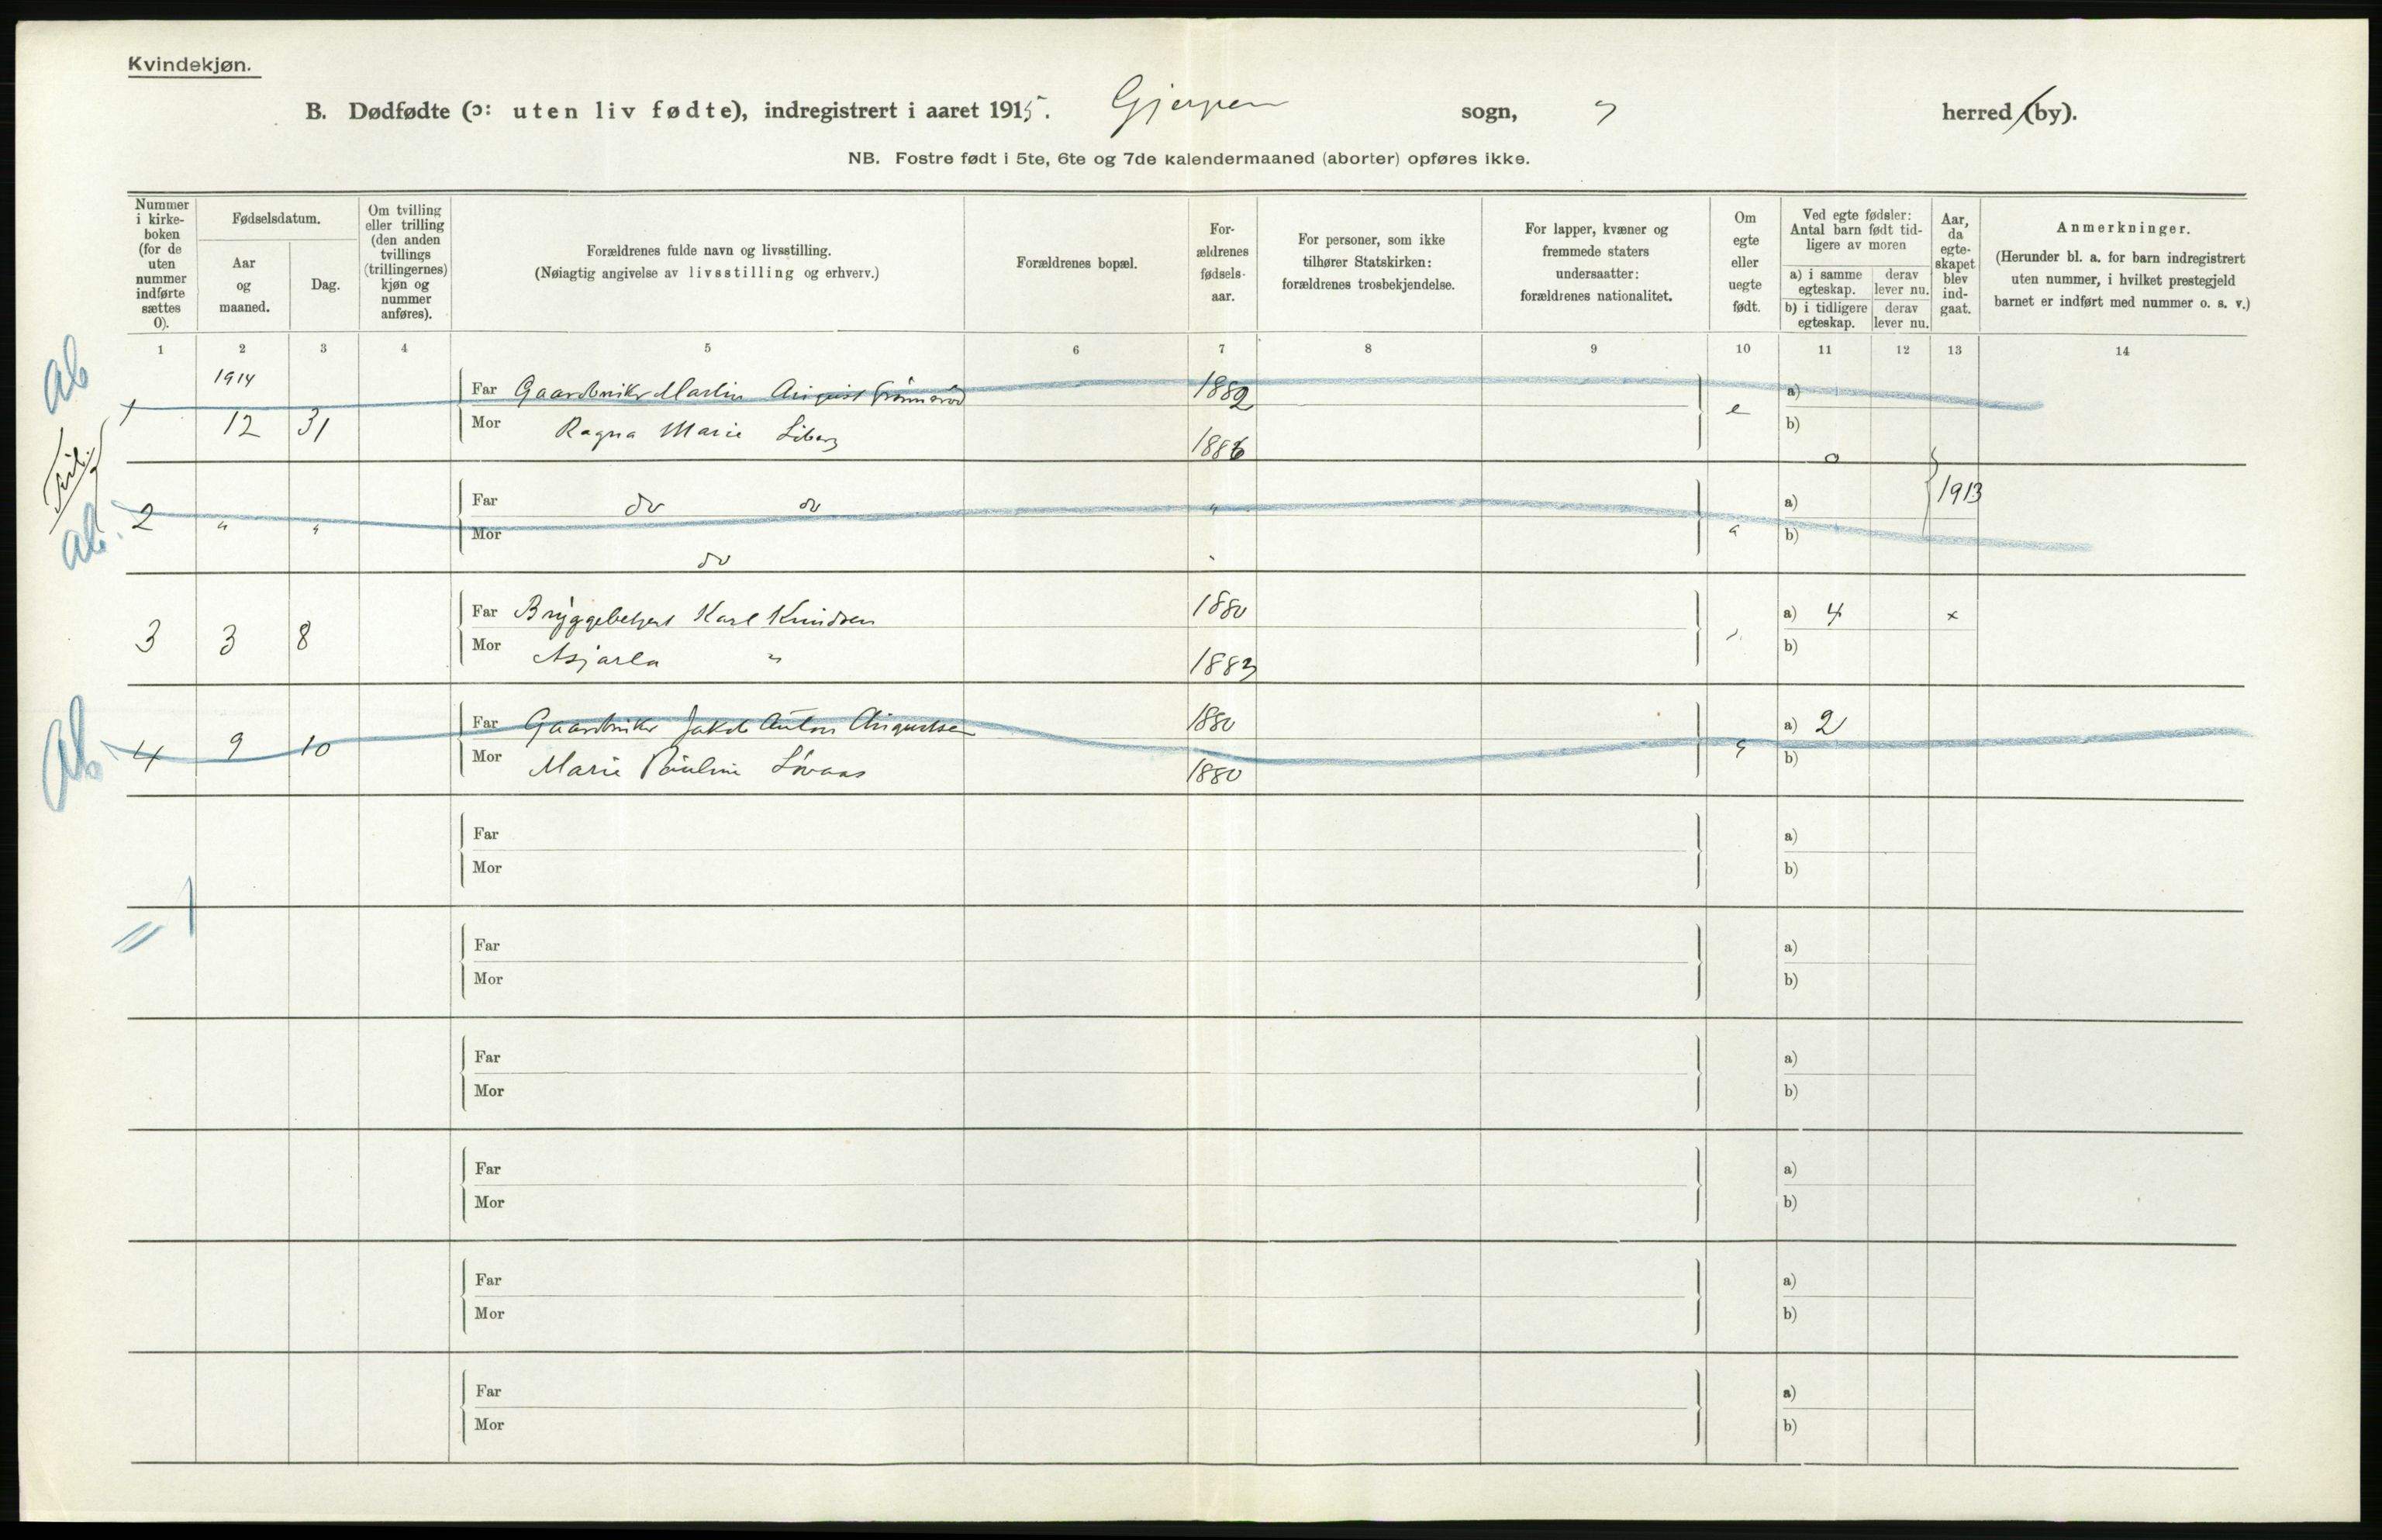 Kvindekjøn.
B. Dødfødte (ɔ: uten liv fødte), indregistrert i aaret 1915. Gjerpen sogn, " herred (by).
NB. Fostre født i 5te, 6te og 7de kalendermaaned (aborter) opføres ikke.
Nummer i kirke-boken (for de uten nummer indførte sættes 0).
Fødselsdatum.
Aar og maaned.
Dag.
Om tvilling eller trilling (den anden tvillings (trillingernes) kjøn og nummer anføres).
Forældrenes fulde navn og livsstilling.
(Nøiagtig angivelse av livsstilling og erhverv.)
Forældrenes bopæl.
For-ældrenes fødsels-aar.
For personer, som ikke tilhører Statskirken: forældrenes trosbekjendelse.
For lapper, kvæner og fremmede staters undersaatter: forældrenes nationalitet.
Om egte eller uegte født.
Ved egte fødsler: Antal barn født tid-ligere av moren
a) i samme egteskap. derav lever nu.
b) i tidligere egteskap. derav lever nu.
Aar, da egte-skapet blev ind-gaat.
Anmerkninger.
(Herunder bl. a. for barn indregistrert uten nummer, i hvilket prestegjeld barnet er indført med nummer o. s. v.)
1 2 3 4 5 6 7 8 9 10 11 12 13 14
ab
1914
1 12 31 Far Gaardbruker Martin August 1882 e a)
Mor Ragna Marie 1886 b)
0
ab. 2 " " Far do do " " a) 1913
Mor do " b)
3 3 8 Far Karl Knudsen 1880 " a) 4 x
Mor " 1883 b)
ab. 4 9 10 Far Gaardbruker Jakob Anton Augustsen 1880 " a) 2
Mor Marie Pauline Løvaas 1880 b)
Far a)
Mor b)
= 1
Far a)
Mor b)
Far a)
Mor b)
Far a)
Mor b)
Far a)
Mor b)
Far a)
Mor b)